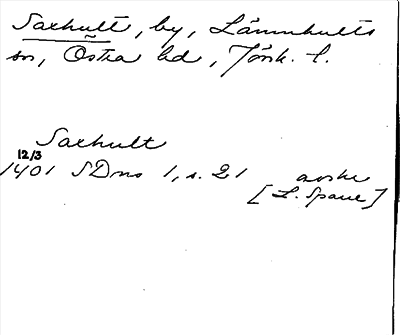 Saxhult, by, Lämmhults
sn, Östra hd, Jönk. l.
Saxhult
12/3
1401 SDns 1, s. 21 avskr
[L. Spare]